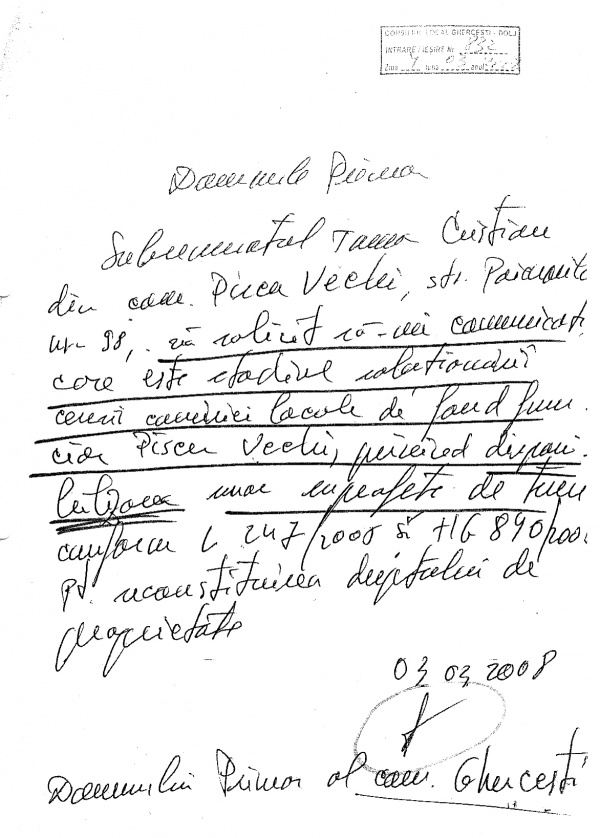 CONSILIUL LOCAL GHERCEȘTI - DOLJ
INTRARE / IEȘIRE Nr. 832
Ziua 4 luna 03 anul 2008
Domnule Primar
Subsemnatul Cristian
din com. Pisca Vechi, str.
nr. 98, vă solicit să-mi comunicați
care este stadiul soluționării
cererii comisiei locale de fond fun
ciar Piscu Vechi, privind disponi
bilizarea unor suprafețe de teren
conform L 247/2005 și HG 890/200
pt. reconstituirea dreptului de
proprietate
03 03 2008
Domnului Primar al com. Ghercești